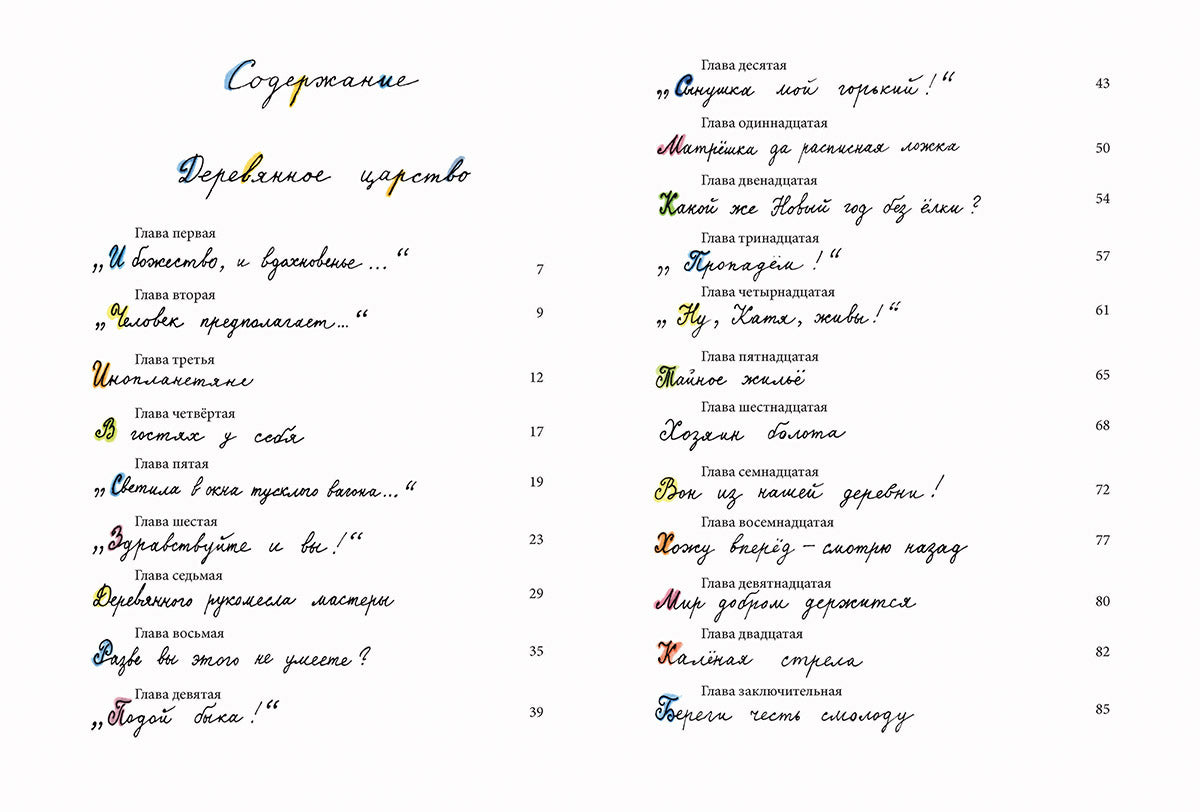 Содержание
Деревянное царство
Глава первая
„И божество, и вдохновенье...“ 7
Глава вторая
„Человек предполагает...“ 9
Глава третья
Инопланетяне 12
Глава четвёртая
В гостях у себя 17
Глава пятая
„Светила в окна тусклого вагона...“ 19
Глава шестая
„Здравствуйте и вы!“ 23
Глава седьмая
Деревянного рукомесла мастеры 29
Глава восьмая
Разве вы этого не умеете? 35
Глава девятая
„Подой быка!“ 39
Глава десятая
„Сынушка мой горький!“ 43
Глава одиннадцатая
Матрёшка да расписная ложка 50
Глава двенадцатая
Какой же Новый год без ёлки? 54
Глава тринадцатая
„Пропадём!“ 57
Глава четырнадцатая
„Ну, Катя, живы!“ 61
Глава пятнадцатая
Тайное жильё 65
Глава шестнадцатая
Хозяин болота 68
Глава семнадцатая
Вон из нашей деревни! 72
Глава восемнадцатая
Хожу вперёд – смотрю назад 77
Глава девятнадцатая
Мир добром держится 80
Глава двадцатая
Калёная стрела 82
Глава заключительная
Береги честь смолоду 85